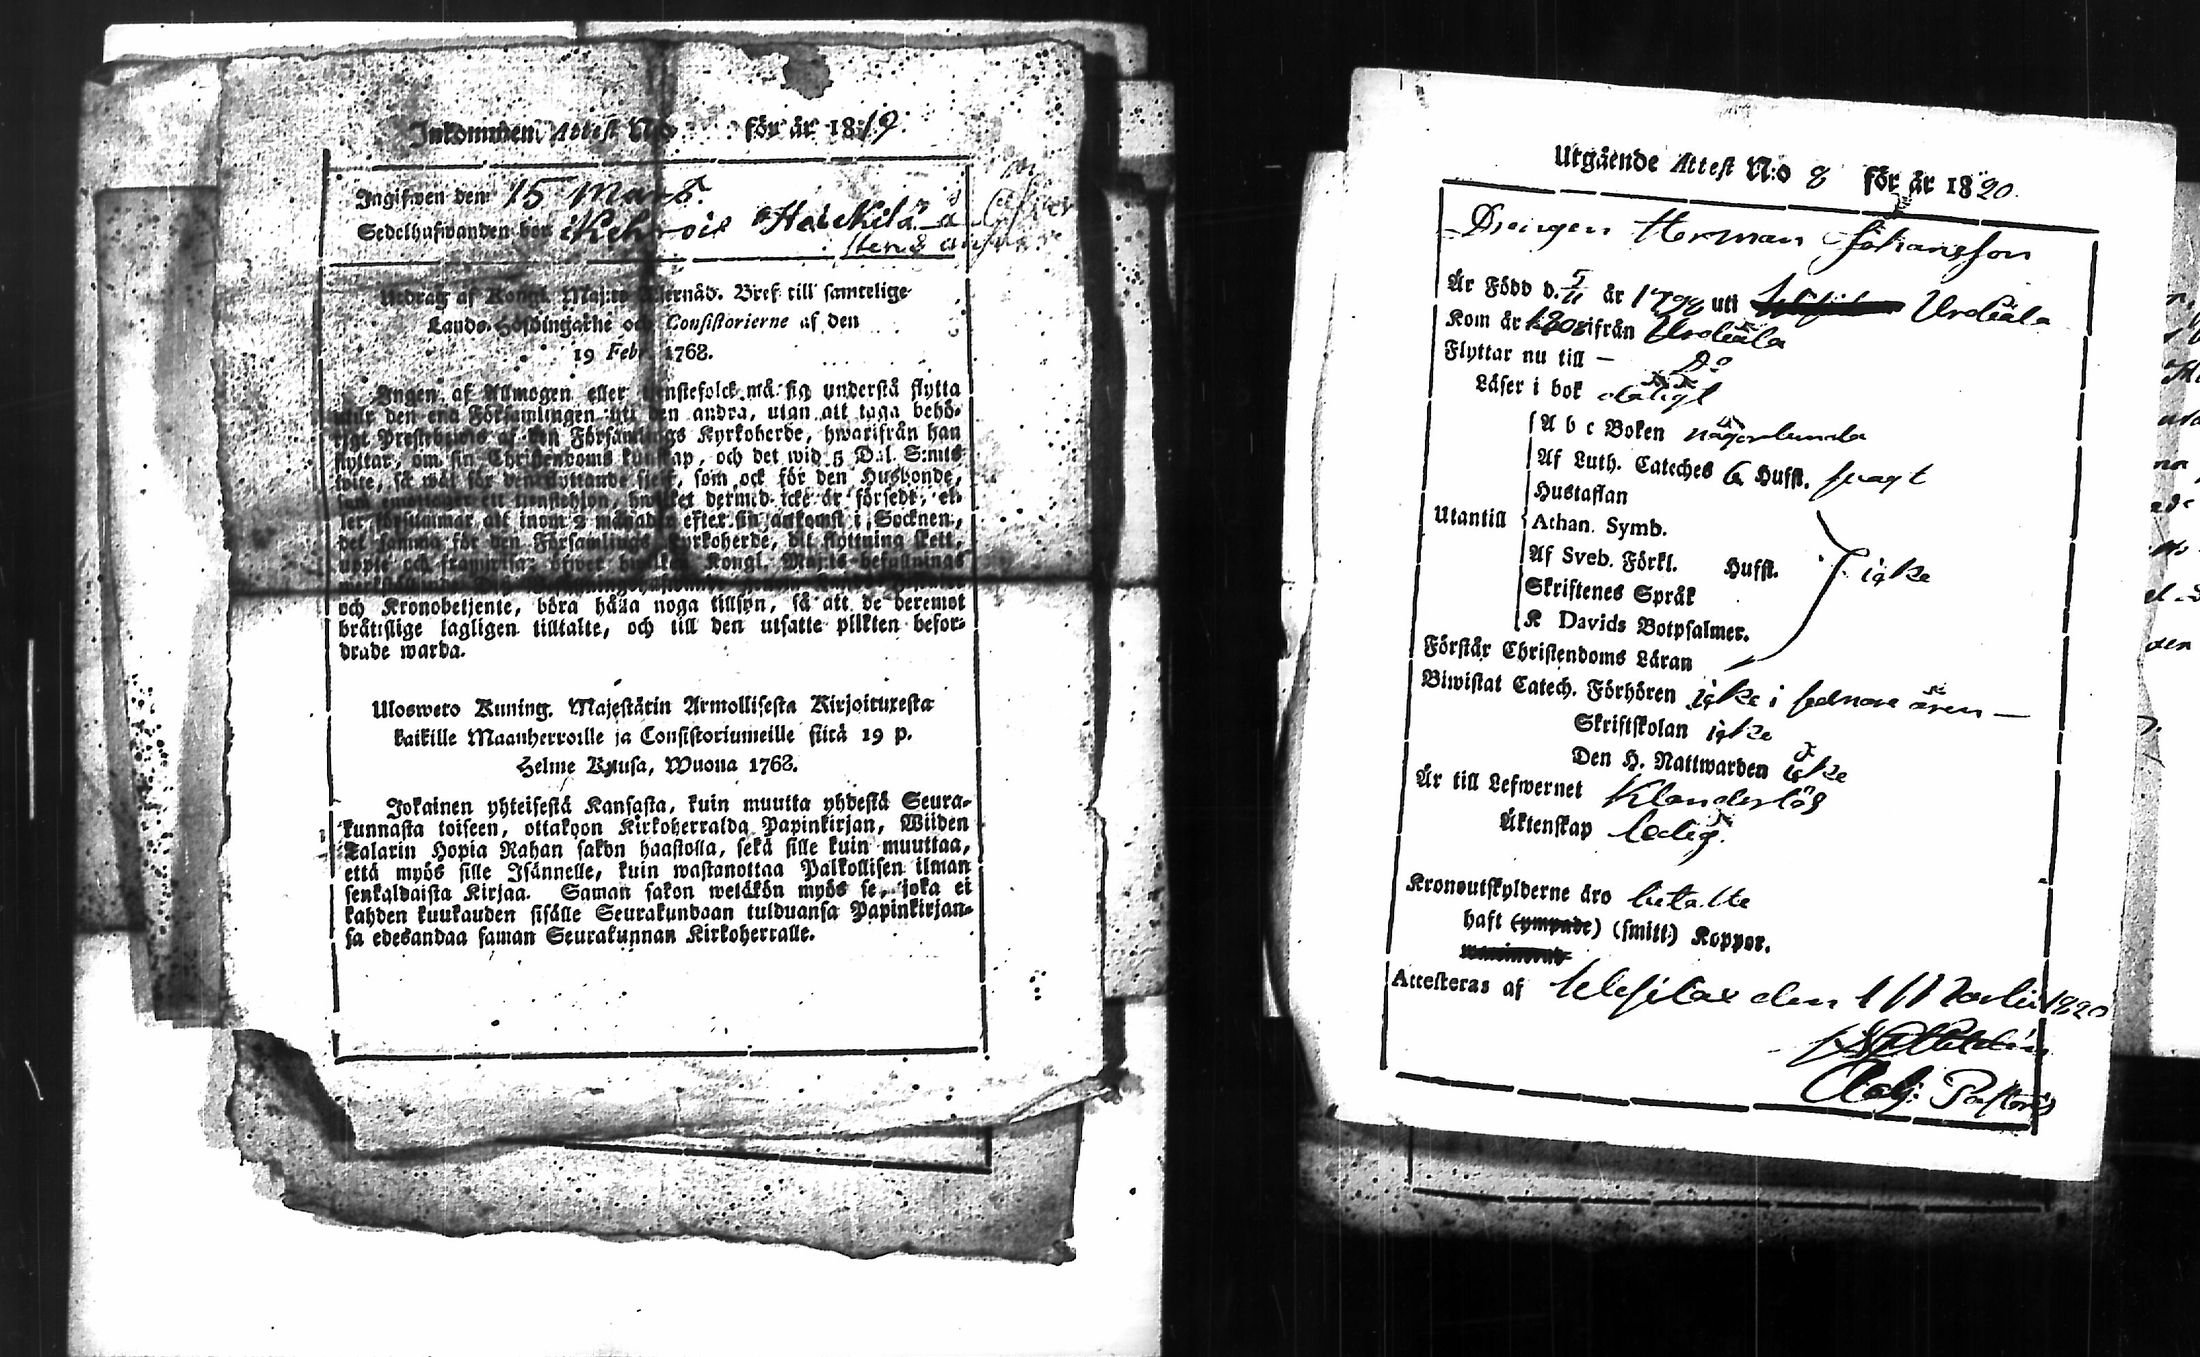 Inkommen Attest N:o för år 1819.
Ingifwen den 15 Mars.
Sedelhafwanden bor i Kehrois Heickilä
Utdrag af Kongl. Maj:ts Allernåd. Bref till samtelige
Lands-Höfdingarne och Consistorierne af den
19 Febr. 1768.
Ingen af Allmogen eller tienstefolck må sig understå flytta
utur den ena Församlingen uti den andra, utan att taga behö-
rigt Prestebewis af den Församlings Kyrkoherde, hwarifrån han
flyttar, om sin Christendoms kunskap, och det wid 5 Dal. S:mts
wite, så wäl för den flyttande sjelf, som ock för den Husbonde,
som emottager ett tienstehjon, hwilket dermed icke är försedt, el-
ler försummar att inom 2 månader efter sin ankomst i Socknen,
det samma för den Församlings Kyrkoherde, dit flyttning skett,
uppte och framwisa; öfwer hwilken Kongl. Maj:ts befallnings
och Kronobetjente, böra hålla noga tillsyn, så att de deremot
bråttslige lagligen tilltalte, och till den utsatte plikten befor-
drade warda.
Ulosweto Kuning. Majestätin Armollisesta Kirjoituxesta
kaikille Maanherroille ja Consistoriumeille siitä 19 p.
Helme Kuusa, Wuona 1768.
Jokainen yhteisestä Kansasta, kuin muutta yhdestä Seura-
kunnasta toiseen, ottakoon Kirkoherralda Papinkirjan, Wiiden
Talarin Hopia Rahan sakon haastolla, sekä sille kuin muuttaa,
että myös sille Isännelle, kuin wastanottaa Palkollisen ilman
senkaldaista Kirjaa. Saman sakon wetäkön myös se, joka ei
kahden kuukauden sisälle Seurakundaan tulduansa Papinkirjan-
sa edesandaa saman Seurakunnan Kirkoherralle.
Utgående Attest N:o 8 för år 1820.
Drengen Herman Johansson
År Född d. 5/11 år 1798 uti Urdiala
Kom år 1808 ifrån Urdiala
Flyttar nu till — D:o
Läser i bok dåligt
A b c Boken någorlunda
Af Luth. Cateches 6 Hufst. swagt
Hustaflan
Utantill Athan. Symb.
Af Sveb. Förkl. Hufst. icke
Skriftenes Språk
K Davids Botpsalmer.
Förstår Christendoms Läran
Biwistat Catech. Förhören icke i sednare åren —
Skriftskolan icke
Den H. Nattwarden icke
År till Lefwernet Klanderlös
Äktenskap ledig.
Kronoutskylderne äro betalte
haft (ympade) (smitt) Koppor.
Attesteras af den 1 Martii 1820
Adj. Pastoris